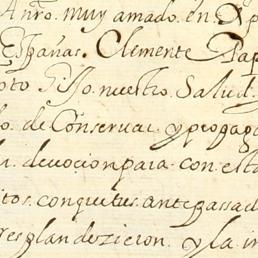 Anro. muy amado. en Xp
Españas. Clemente Pap
pto. hijo. nuestro. Salud.
o. de Conservar. y propaga
devocion para con esta
itos. con que tus. antepassad
resplandezieron. y la in